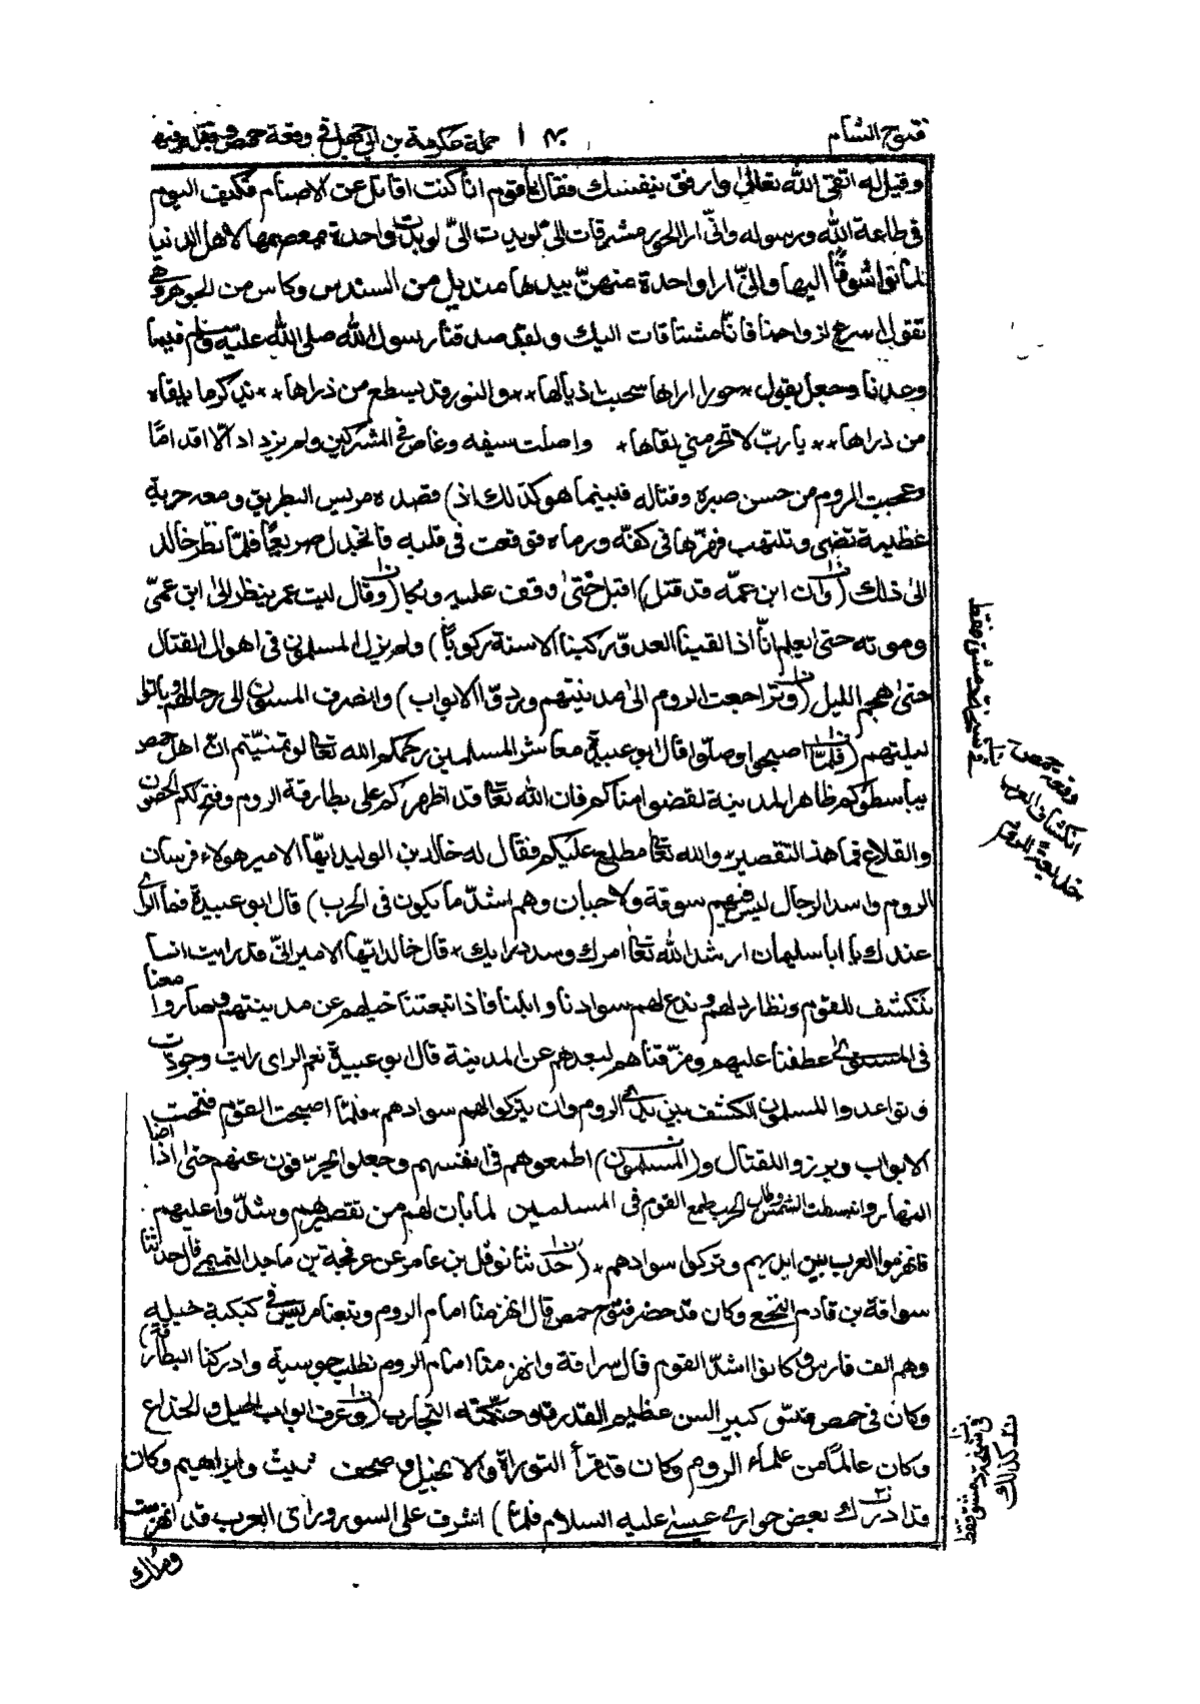 فتوح الشام
١٣٠ حملة عكرمة بن ابي جهل في وقعة حمص
وقيل له اتقى الله تعالى وارفق بنفسك فقال يا قوم انا كنت اقاتل عن الاصنام فكيف اليوم
فى طاعة الله ورسوله وانّى ارى الحور مشرقات الىّ لو بدت واحدة بمعصمها لاهل الدنيا
لماتوا شوقًا اليها وانّى ارا واحدة منهنّ بيدها منديل من السندس وكاس من الجوهر وهى
تقول اسرع لزواجنا فانّا مشتاقات اليك ولقد صدقنا رسول الله صلى الله عليه وسلم فيما
وعدنا وجعل يقول * حورا اراها سحبت اذيالها ** والنور قد يسطع من ذراها **
من ذراها ** يا ربّ لا تحرمنى لقاها * واصلت سيفه وغاص فى المشركين ولم يزداد الّا اقدامًا
وعجبت الروم من حسن صبره وقتاله فبينما هو كذلك اذ) قصده مريس البطريق ومعه حربة
عظيمة تضئ وتلتهب فهزّها فى كفّه ورماه فوقعت فى قلبه فانجدل صريعًا فلمّا نظر خالد
الى ذلك (وان ابن عمّه قد قتل) اقبل حتى وقف عليه وبكا (وقال ليت عمر ينظر الى ابن عمّى
وموته حتى يعلم انّا اذا لقينا العدوّ ركبنا الاسنة ركوبًا) ولم يزل المسلمون فى اهوال القتال
حتى هجم الليل (وتراجعت الروم الى مدينتهم وردّوا الابواب) وانصرف المسلمون الى رحالهم وباتوا
ليلتهم (فلمّا اصبحوا وصلّوا قال ابو عبيدة معاشر المسلمين رحمكم الله تعالى
ظاهر المدينة فان الله تعالى قد اظهركم على بطارقة الروم وفتح لكم الحصون
والقلاع فما هذا التقصير والله تعالى مطلع عليكم فقال له خالد بن الوليد ايّها الامير هولاء فرسان
الروم واسد الرجال ليس فيهم سوقة ولا جبان وهم اشدّ ما يكون فى الحرب) قال ابو عبيدة فما الراى
عندك يا ابا سليمان ارشد الله تعالى امرك وسدد رايك * قال خالد ايّها الامير انّى قد رايت انا
ننكشف للقوم ونظاردلهم وندع لهم سوادنا وابلنا فاذا تبعتنا خيلهم عن مدينتهم وصاروا معنا
فى المستوى عطفنا عليهم ومزّقناهم لبعدهم عن المدينة قال ابو عبيدة نعم الراى رايت وجودت
وتواعدوا المسلمون الكشف بين يدى الروم وان يتركوا لهم سوادهم * فلمّا اصبحت القوم فتحت
الابواب وبرزوا للقتال و(المسلمون) اطمعوهم فى انفسهم وجعلوا يتحرّفون عنهم حتى اذا اضا
النهار وانبسطت الشمس وطاب الحرب طمع القوم فى المسلمين لما بان لهم من تقصيرهم وشدّوا عليهم
فانهزموا العرب بين ايديهم وتركوا سوادهم * (حدّثنا نوفل بن عامر عن عرفجة بن ماجد التميمى قال حدثنا
سراقة بن قادم النخعى وكان قد حضر فتوح حمص قال انهزمنا امام الروم وتبعنا مريس فى كبكبة خيله
وهم الف فارس وكانوا اشدّ القوم قال سراقة وانهزمنا امام الروم نطلب جوسية وادركنا البطارقة
وكان فى حمص قسّ كبير السن عظيم القدر قد حنّكته التجارب (وعرف ابواب الحيل والخداع
وكان عالمًا من علماء الروم وكان قد قرأ التوراة والانجيل وصحف شيث وابراهيم وكان
قد ادرك بعض حوارى عيسى عليه السلام فلمّا) اشرف على السور وراى العرب قد انهزمت
وملك
فى نسخة دمشق فقط
وقعة حمص
انكشاف العرب
خديعة للروم
فى نسخة دمشق فقط